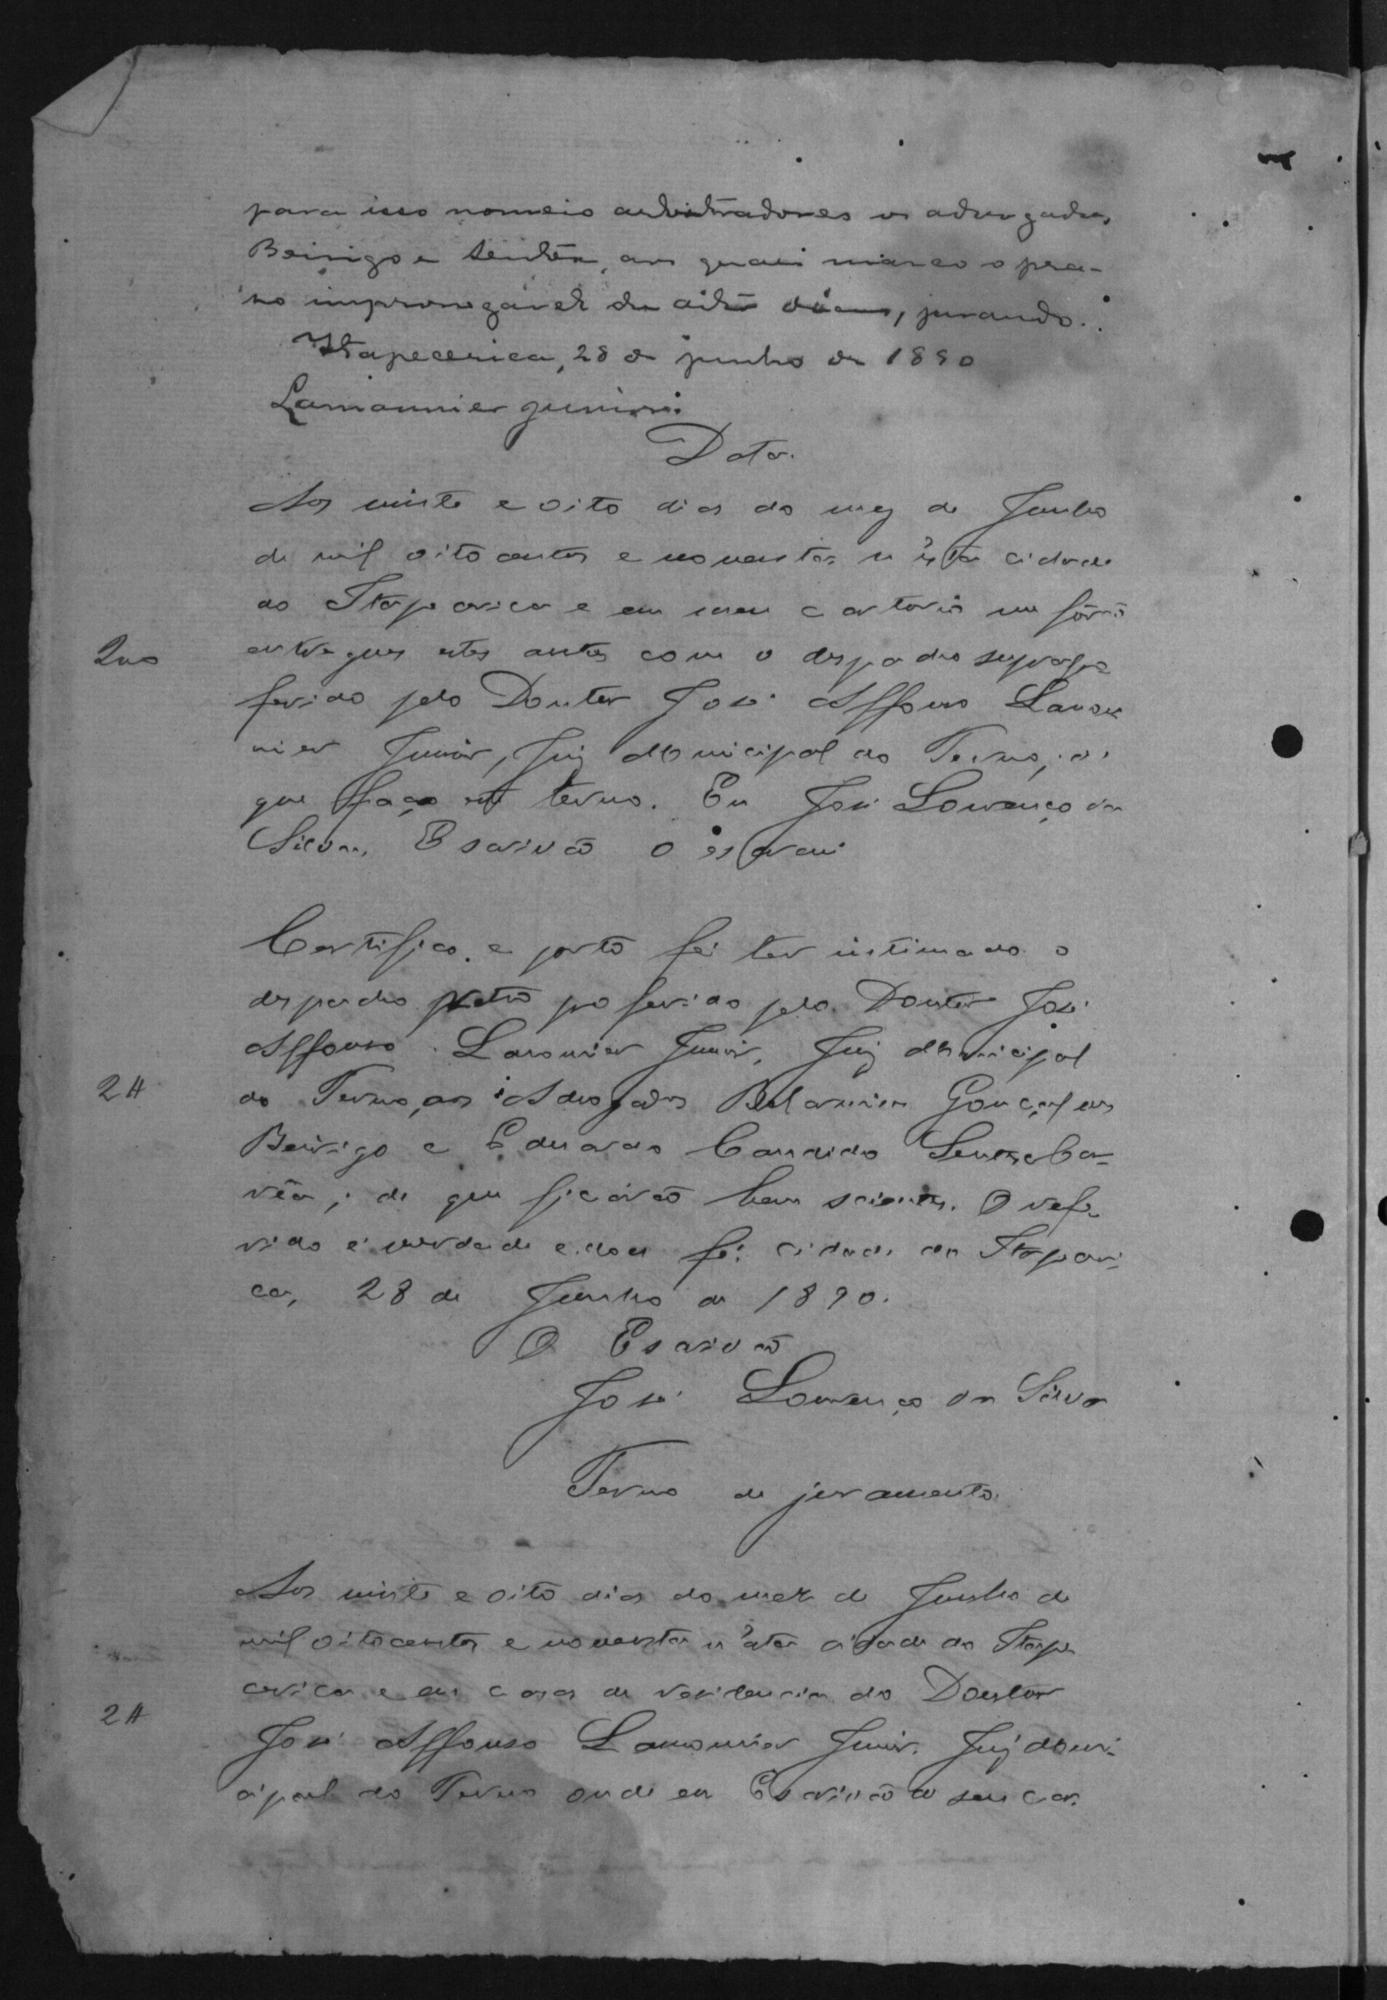 para isso nomeio arbitradores os advogados
Beirigo e Seabra, aos quaes marco o pra-
so improrogavel de oito dias, jurando.
Itapecerica, 28 de junho de 1890
Lamounier Junior.
Data.
Aos vinte e oito dias do mez de Junho
de mil oitocentos e noventa n'esta cidade
do Itapecerica e em meu cartorio me forão
entregues estes autos com o despacho supra pro
200
ferido pelo Doutor José Affonso Lamou
nier Junior, Juiz Municipal do Termo, do
que faço este termo. Eu José Lourenço da
Silva, Escrivão o escrevi
Certifico e porto fé ter intimado o
despacho retro proferido pelo Doutor José
Affonso Lamounier Junior, Juiz Municipal
do Termo, aos Advogados Belarmino Gonçalves
2H
Beirigo e Eduardo Candido
de que ficárão bem scientes. O refe
rido é verdade e dou fé. Cidade do Itapeceri
ca, 28 de Junho de 1890.
O Escrivão
José Lourenço da Silva
Termo de juramento
Aos vinte e oito dias do mez de Junho de
mil oitocentos e noventa n'esta cidade do Itape
cerica e em casa de residencia do Doutor
2H
José Affonso Lamounier Junior, Juiz Muni-
cipal do Termo onde eu Escrivão de seu car